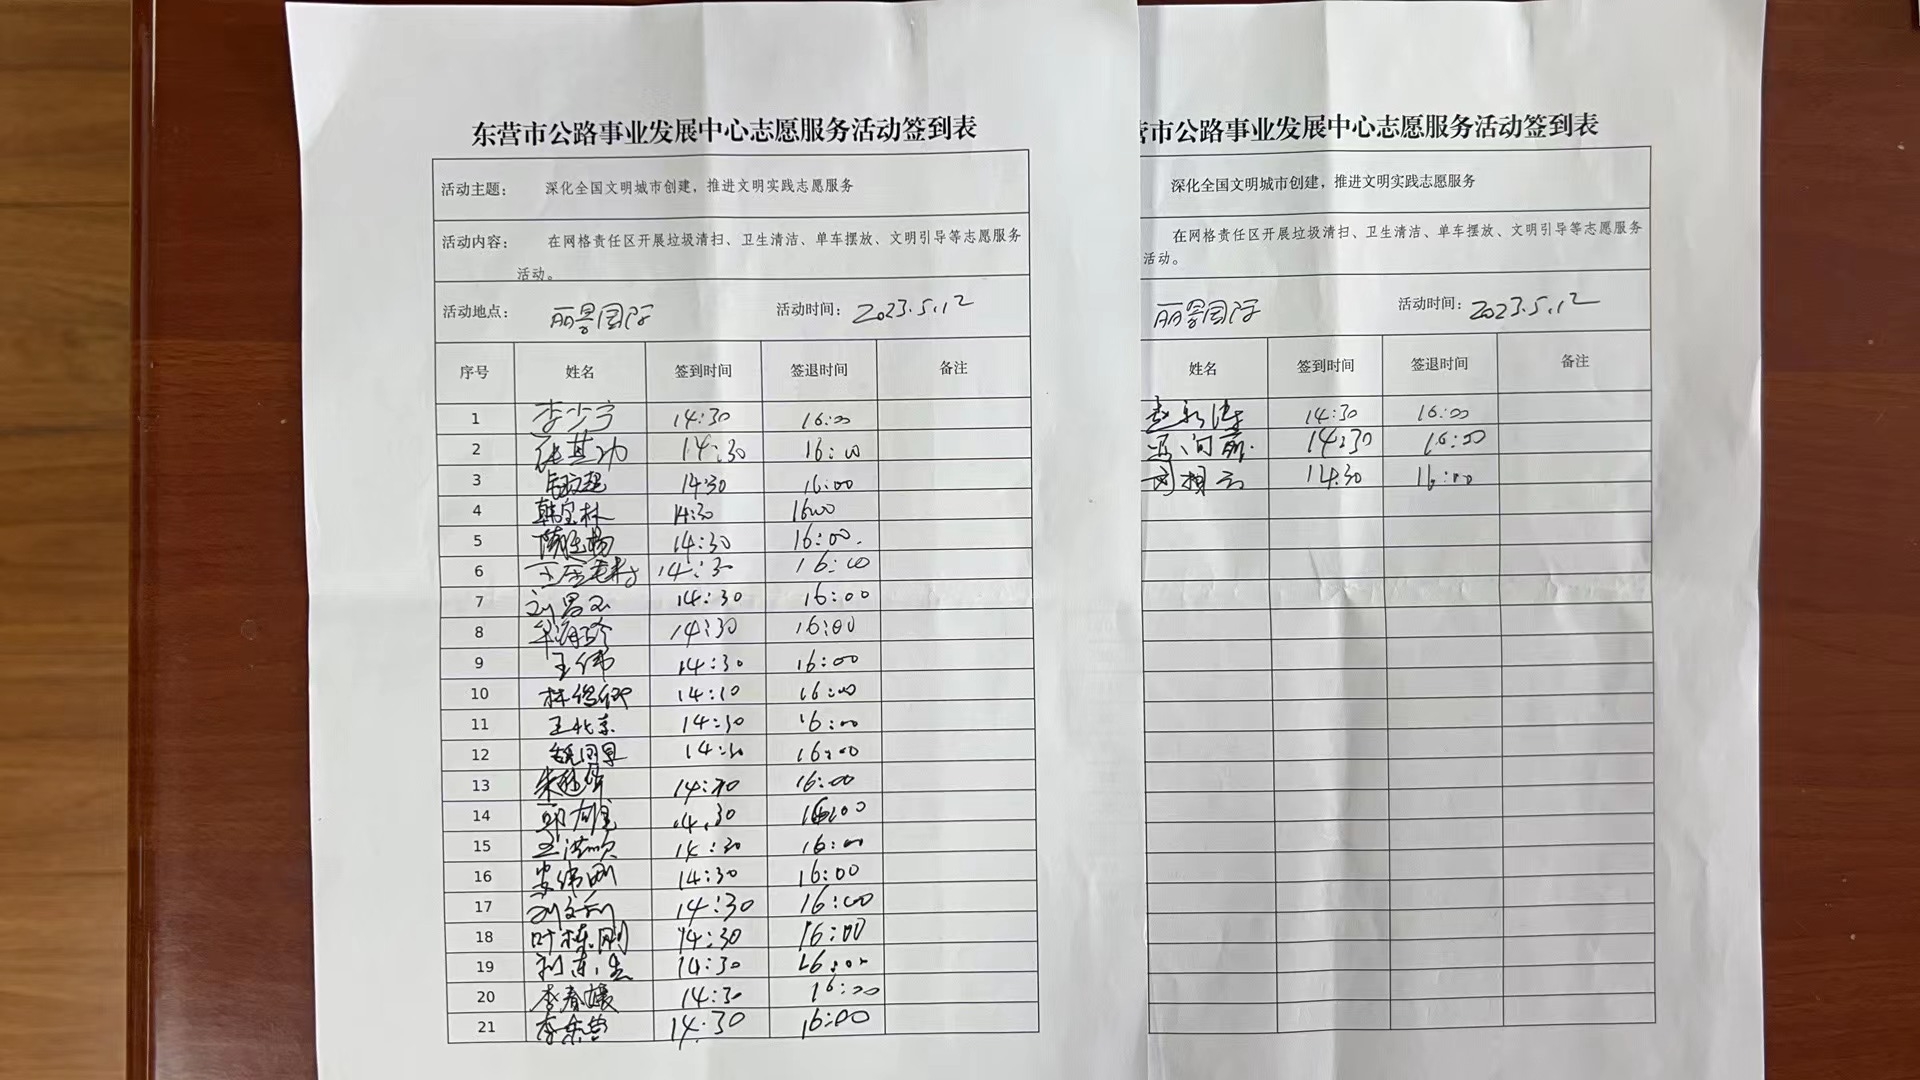 东营市公路事业发展中心志愿服务活动签到表
活动主题： 深化全国文明城市创建，推进文明实践志愿服务
活动内容： 在网格责任区开展垃圾清扫、卫生清洁、单车摆放、文明引导等志愿服务
活动。
活动地点： 丽景国际 活动时间：2023.5.12
序号 姓名 签到时间 签退时间 备注
1 李少宁 14:30 16:00
2 张其功 14:30 16:00
3 14:30 16:00
4 韩宝林 14:30 16:00
5 14:30 16:00.
6 14:30 16:00
7 14:30 16:00
8 14:30 16:00
9 王伟 14:30 16:00
10 14:10 16:00
11 王北京 14:30 16:00
12 14:30 16:00
13 14:30 16:00
14 14:30 16:00
15 王洪顺 14:30 16:00
16 安伟刚 14:30 16:00
17 14:30 16:00
18 叶栋刚 14:30 16:00
19 14:30 16:00
20 李春媛 14:30 16:00
21 14:30 16:00
市公路事业发展中心志愿服务活动签到表
深化全国文明城市创建，推进文明实践志愿服务
在网格责任区开展垃圾清扫、卫生清洁、单车摆放、文明引导等志愿服务
活动。
丽景国际 活动时间：2023.5.12
姓名 签到时间 签退时间 备注
14:30 16:00
14:30 16:00
14:30 16:00